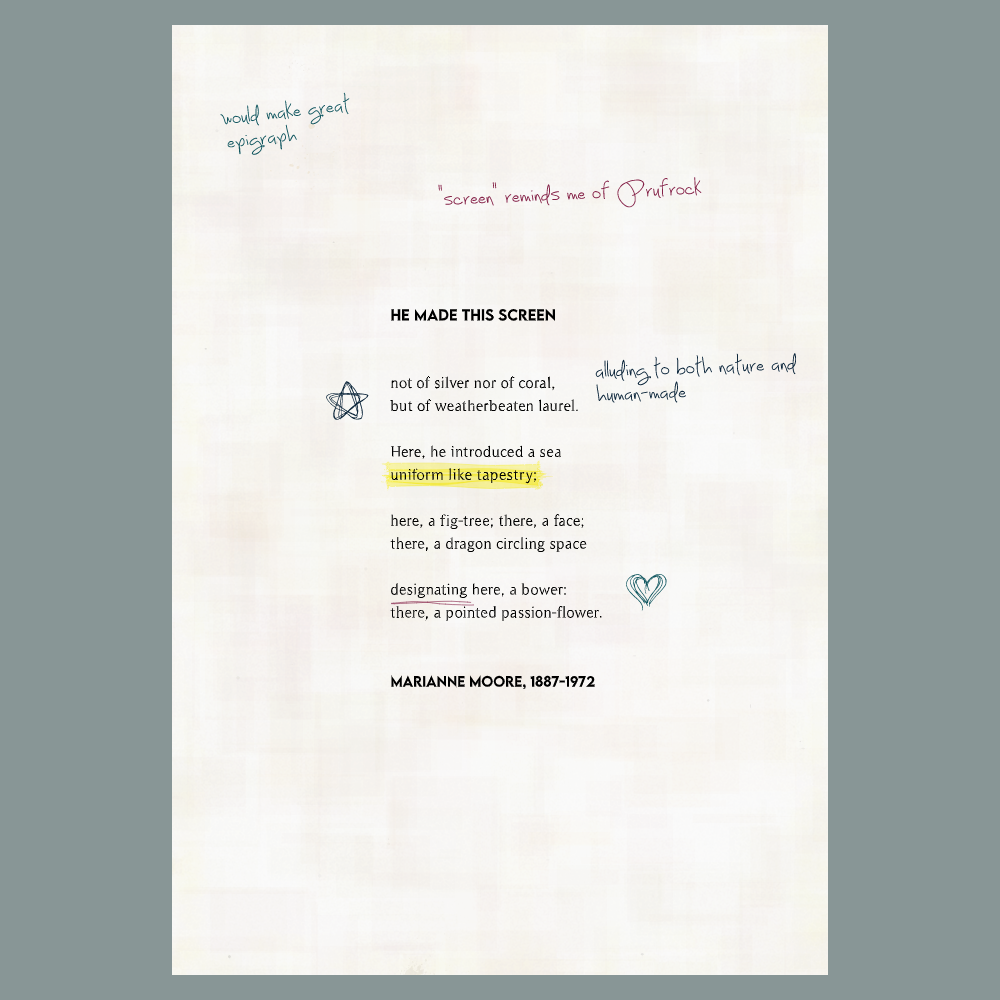 would make great
epigraph
"screen" reminds me of Prufrock
HE MADE THIS SCREEN
not of silver nor of coral,
but of weatherbeaten laurel.
alluding to both nature and
human-made
Here, he introduced a sea
uniform like tapestry;
here, a fig-tree; there, a face;
there, a dragon circling space
designating here, a bower:
there, a pointed passion-flower.
MARIANNE MOORE, 1887-1972